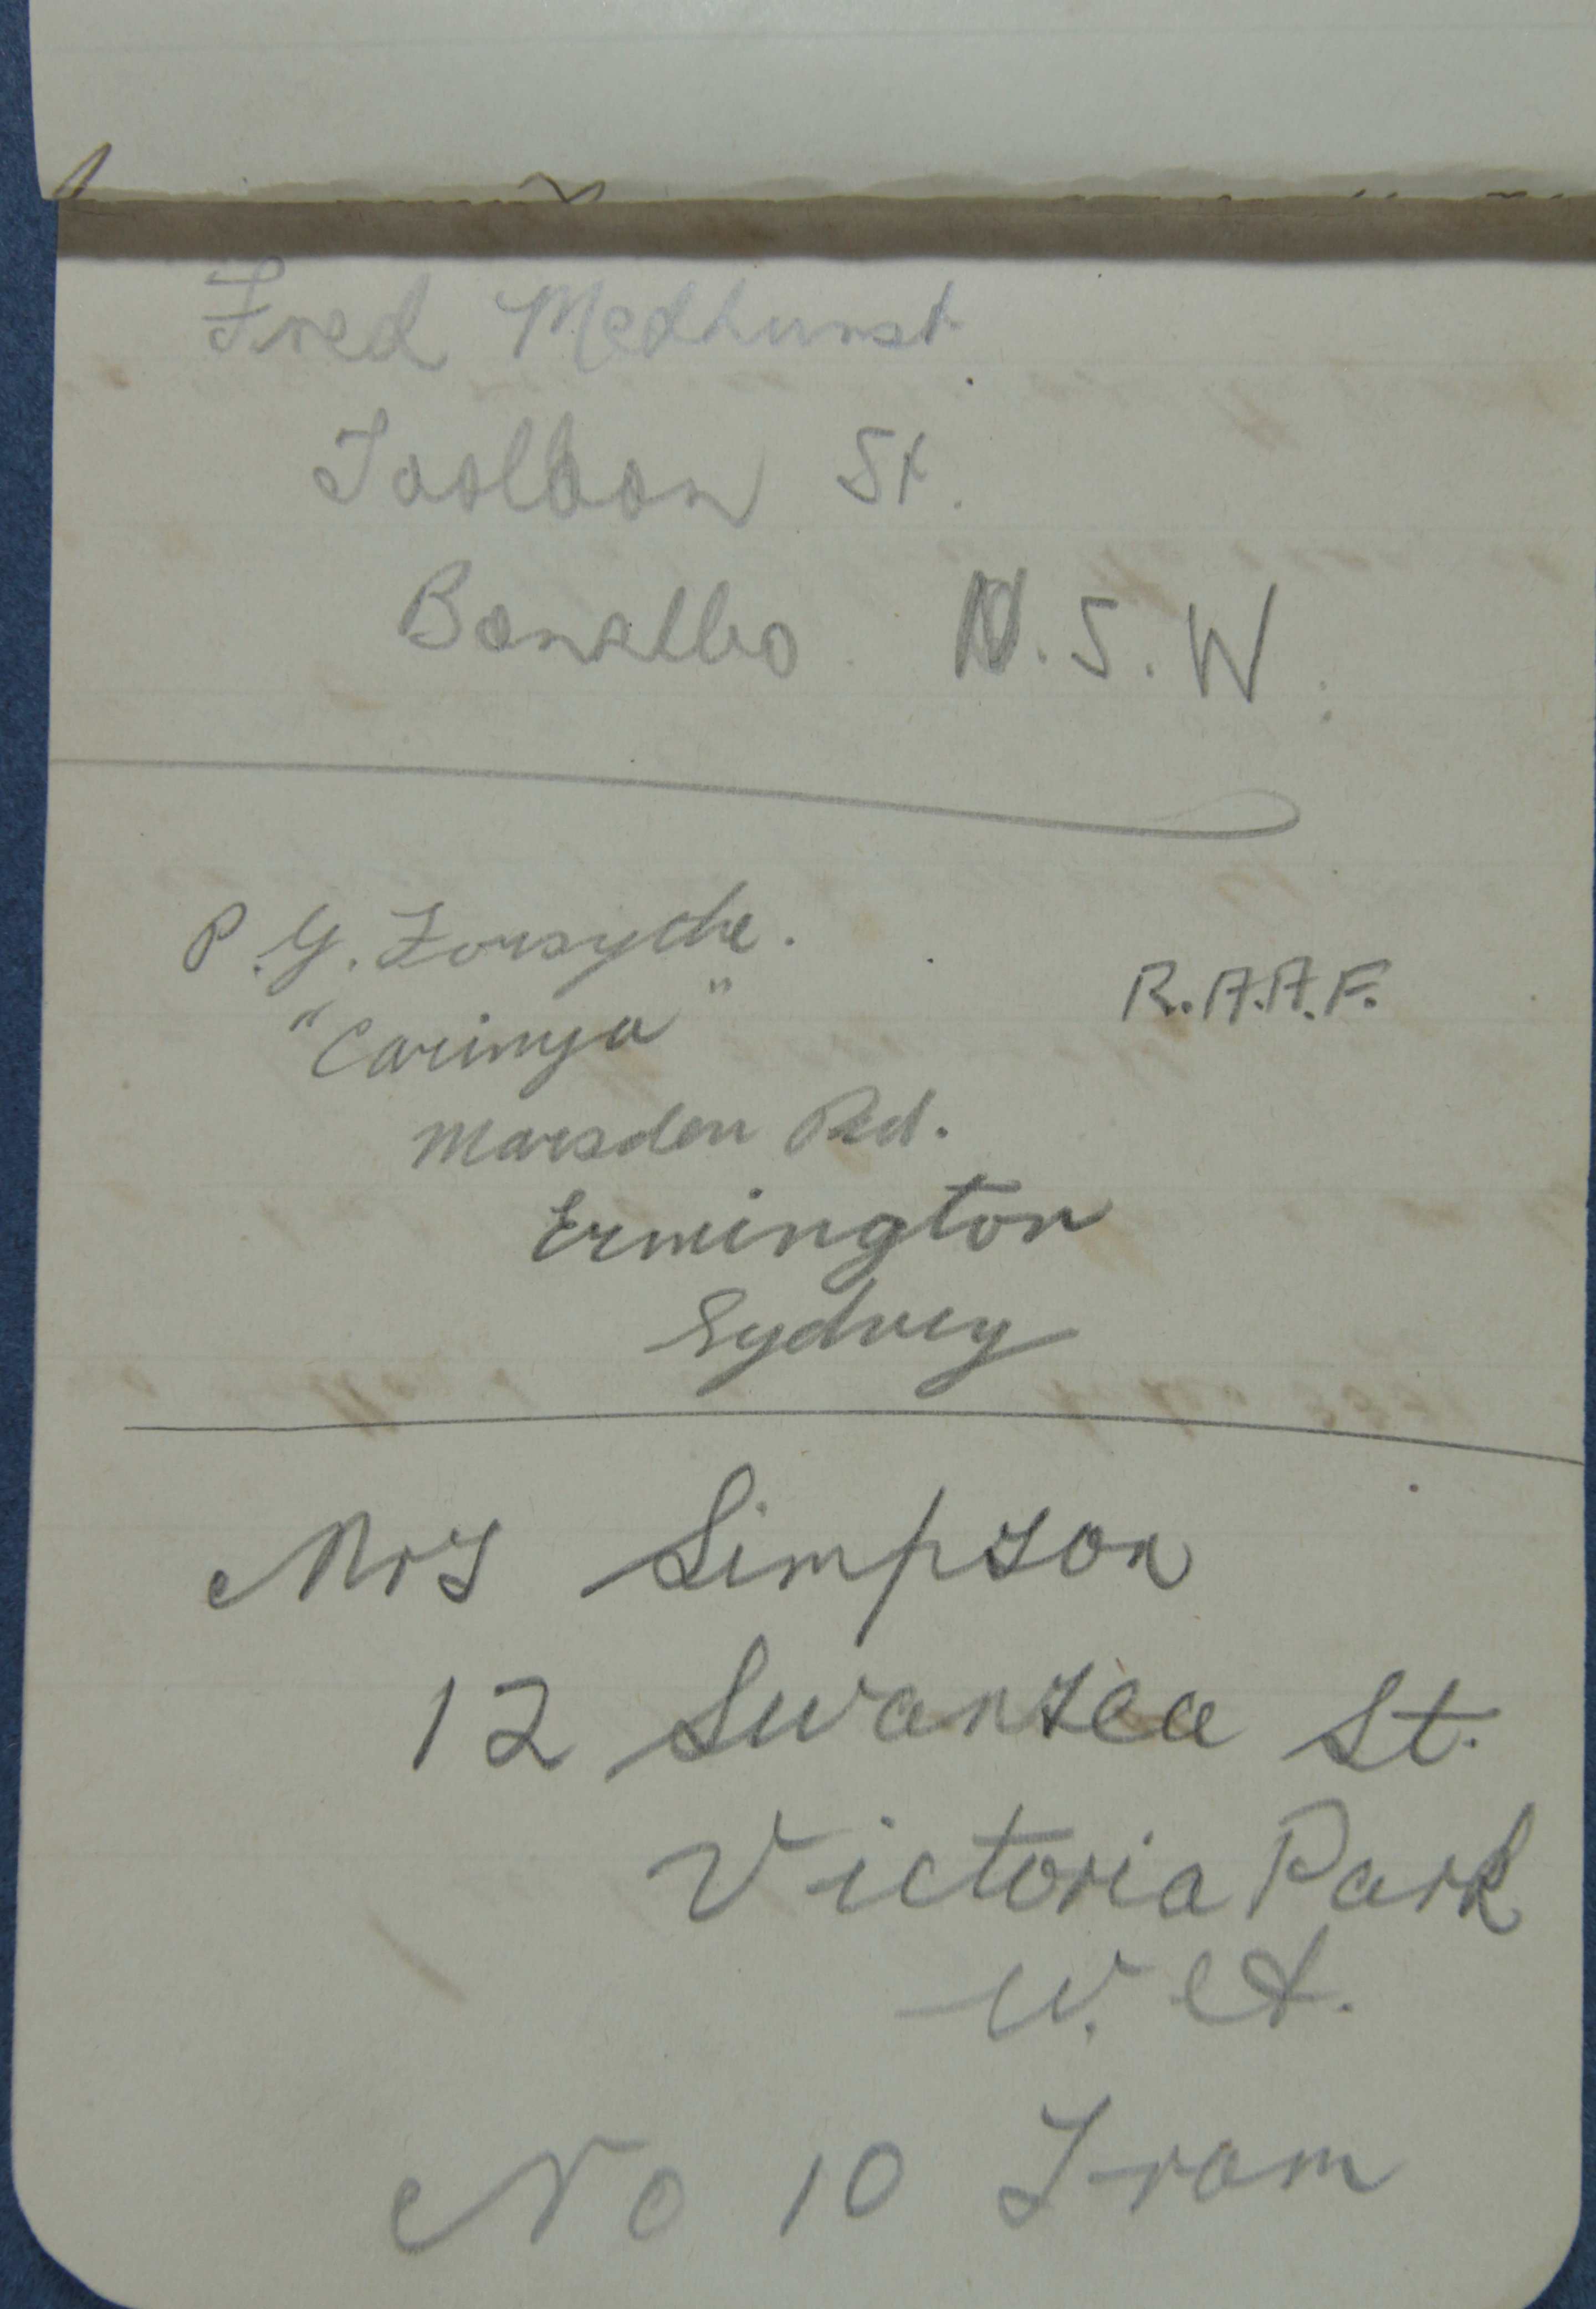 Fred Medhurst
Toolbon St.
Bonalbo N.S.W.
P.G. Forsythe.
R.A.A.F.
"Carinya"
Marsden Rd.
Ermington
Sydney
Mrs Simpson
12 Swansea St.
Victoria Park
W.A.
No 10 Tram